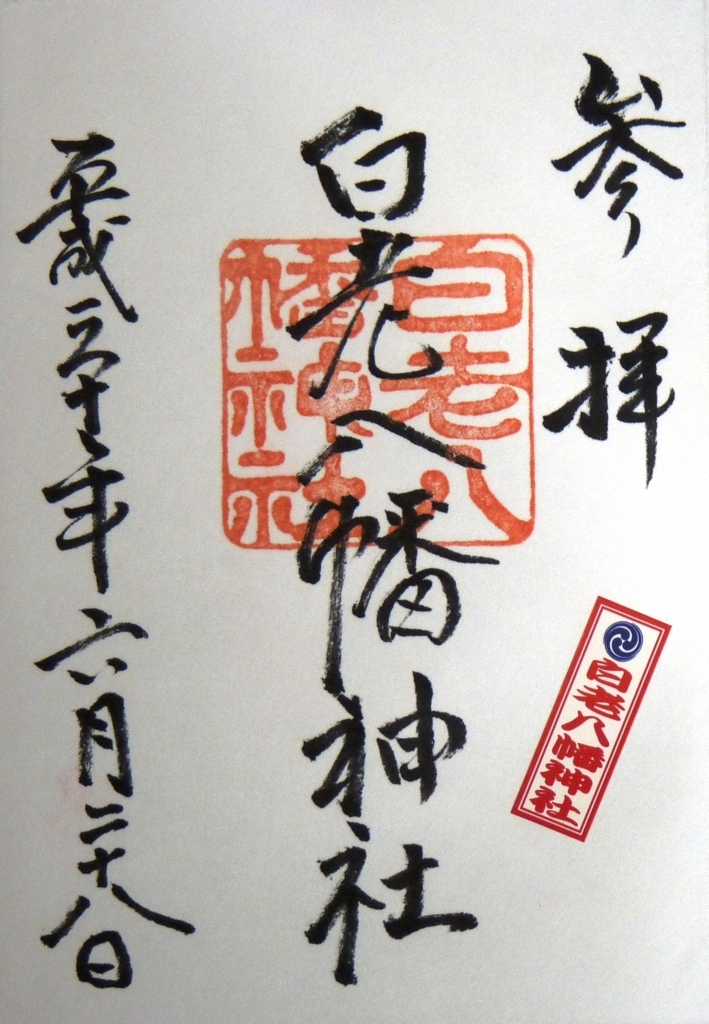 参拝
白老八幡神社
平成三十年六月二十八日
白老八
幡神社
白老八幡神社